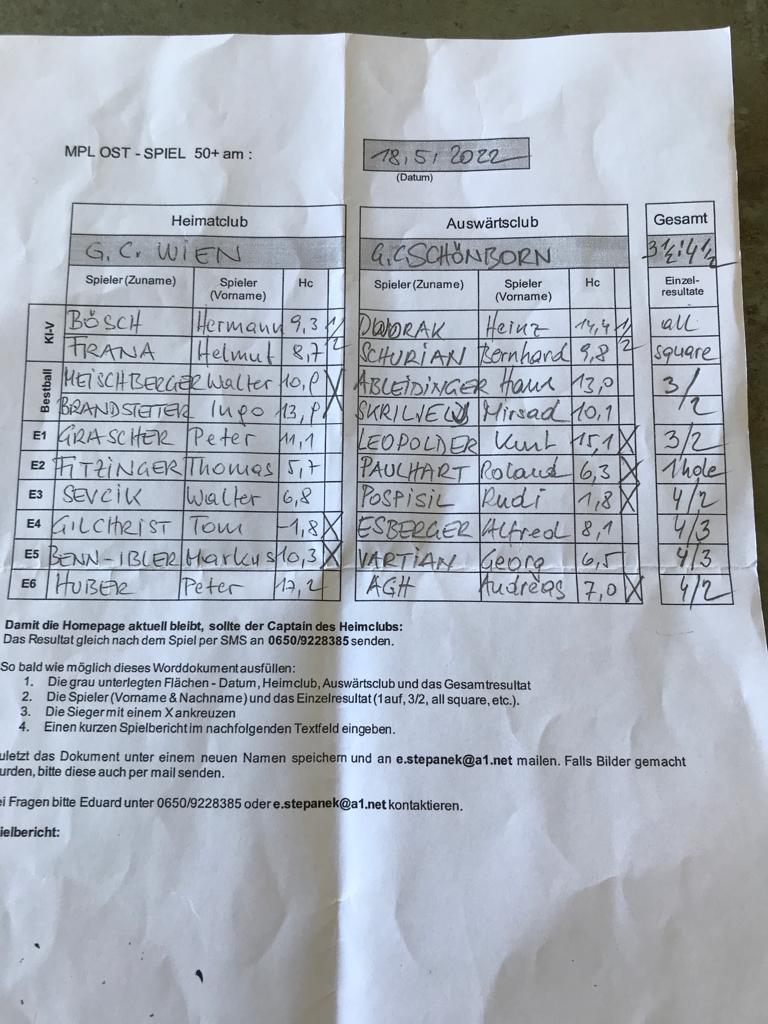 MPL OST - SPIEL 50+ am : 18,5, 2022
(Datum)
Heimatclub Auswärtsclub Gesamt
G.C. WIEN G.C SCHÖNBORN 3½:4½
Spieler (Zuname) Spieler (Vorname) Hc Spieler (Zuname) Spieler (Vorname) Hc Einzel-resultate
Kl-V BÖSCH Hermann 9,3 1/2 DWORAK Heinz 14,4 1/2 all
FIRANA Helmut 8,7 SCHURIAN Bernhard 9,8 square
Bestball HEISCHBERGER Walter X ABLEIDINGER Hans 13,0 3/2
BRANDSTETTER Ingo SKRILJELJ Mirsad 10,1
E1 GRASCHER Peter 11,1 LEOPOLDER Kurt 15,1 X 3/2
E2 FITZINGER Thomas 5,7 PAULHART Roland 6,3 X 1 hole
E3 SEVCIK Walter 6,8 POSPISIL Rudi 1,8 X 4/2
E4 GILCHRIST Tom -1,8 X ESBERGER Alfred 8,1 4/3
E5 BENN-IBLER Markus 10,3 X VARTIAN Georg 6,5 4/3
E6 HUBER Peter 17,2 AGH Andreas 7,0 X 4/2
Damit die Homepage aktuell bleibt, sollte der Captain des Heimclubs:
Das Resultat gleich nach dem Spiel per SMS an 0650/9228385 senden.
So bald wie möglich dieses Worddokument ausfüllen:
1. Die grau unterlegten Flächen - Datum, Heimclub, Auswärtsclub und das Gesamtresultat
2. Die Spieler (Vorname & Nachname) und das Einzelresultat (1auf, 3/2, all square, etc.).
3. Die Sieger mit einem X ankreuzen
4. Einen kurzen Spielbericht im nachfolgenden Textfeld eingeben.
uletzt das Dokument unter einem neuen Namen speichern und an e.stepanek@a1.net mailen. Falls Bilder gemacht
urden, bitte diese auch per mail senden.
ei Fragen bitte Eduard unter 0650/9228385 oder e.stepanek@a1.net kontaktieren.
ielbericht: